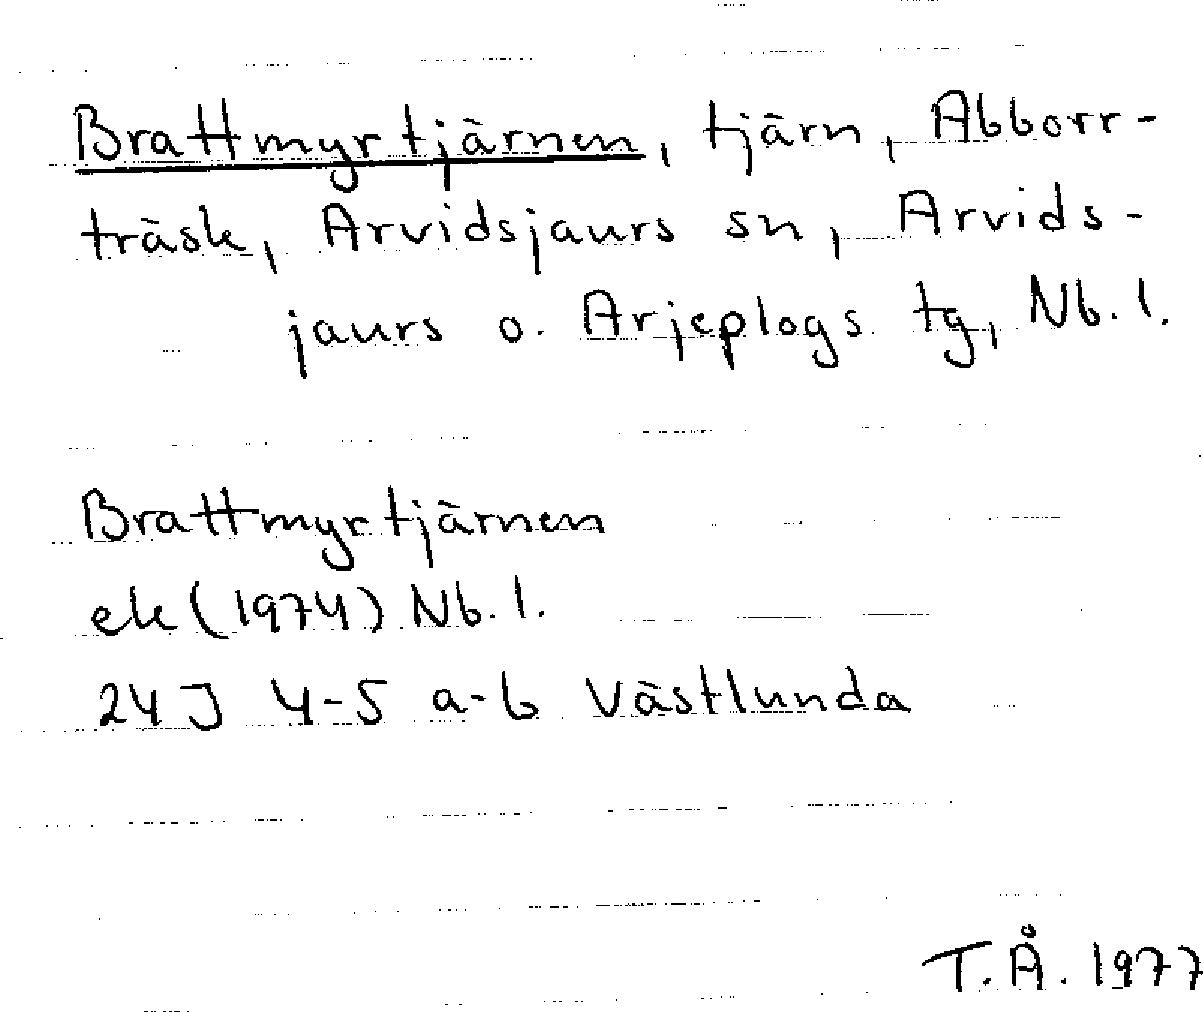 Brattmyrtjärnen, tjärn, Abborr-
träsk, Arvidsjaurs sn, Arvids-
jaurs o. Arjeplogs tg, Nb. l.
Brattmyrtjärnen
ek (1974) Nb. l.
24 J 4-5 a-b Västlunda
T.Å. 1977